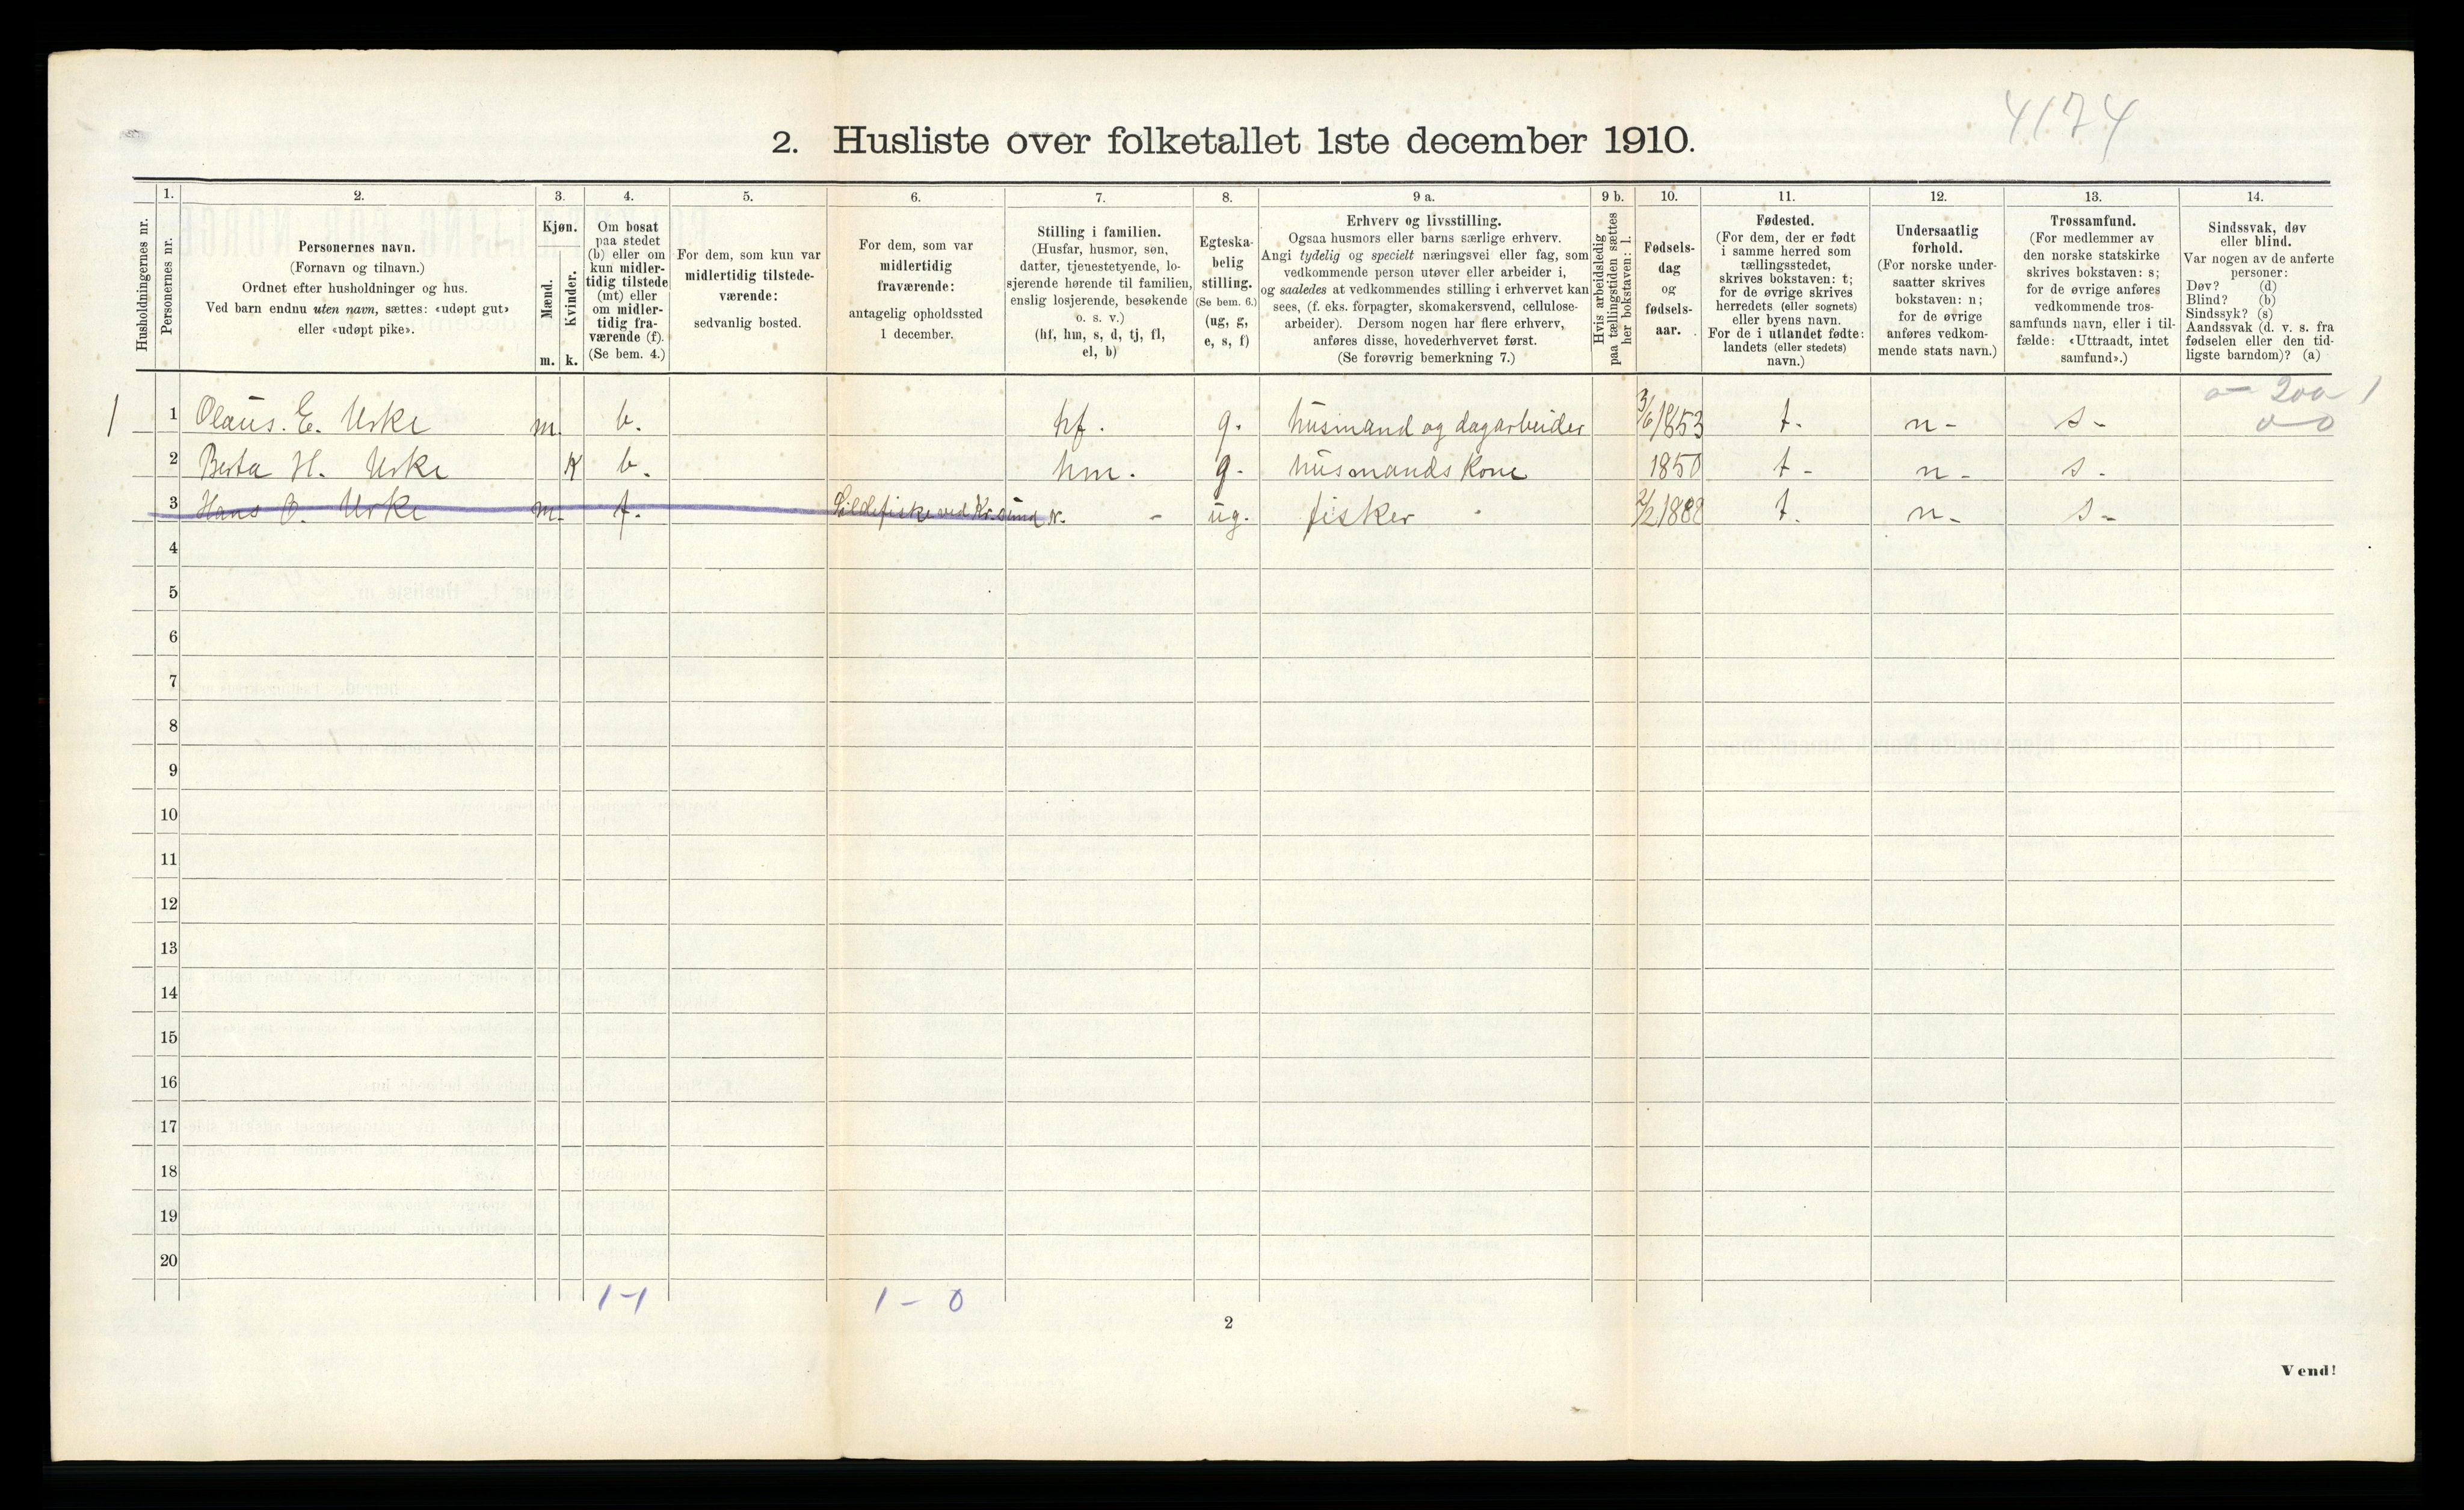 4174
2. Husliste over folketallet 1ste december 1910.
Husholdningernes nr.
1.
Personernes nr.
2.
Personernes navn.
(Fornavn og tilnavn.)
Ordnet efter husholdninger og hus.
Ved barn endnu uten navn, sættes: «udøpt gut»
eller «udøpt pike».
3.
Kjøn.
Mænd.
Kvinder.
m. k.
4.
Om bosat
paa stedet
(b) eller om
kun midler-
tidig tilstede
(mt) eller
om midler-
tidig fra-
værende (f).
(Se bem. 4.)
5.
For dem, som kun var
midlertidig tilstede-
værende:
sedvanlig bosted.
6.
For dem, som var
midlertidig
fraværende:
antagelig opholdssted
1 december.
7.
Stilling i familien.
(Husfar, husmor, søn,
datter, tjenestetyende, lo-
sjerende hørende til familien,
enslig losjerende, besøkende
o. s. v.)
(hf, hm, s, d, tj, fl,
el, b)
8.
Egteska-
belig
stilling.
(Se bem. 6.)
(ug, g,
e, s, f)
9 a.
Erhverv og livsstilling.
Ogsaa husmors eller barns særlige erhverv.
Angi tydelig og specielt næringsvei eller fag, som
vedkommende person utøver eller arbeider i,
og saaledes at vedkommendes stilling i erhvervet kan
sees, (f. eks. forpagter, skomakersvend, cellulose-
arbeider). Dersom nogen har flere erhverv,
anføres disse, hovederhvervet først.
(Se forøvrig bemerkning 7.)
9 b.
Hvis arbeidsledig
paa tællingstiden sættes
her bokstaven: l.
10.
Fødsels-
dag
og
fødsels-
aar.
11.
Fødested.
(For dem, der er født
i samme herred som
tællingsstedet,
skrives bokstaven: t;
for de øvrige skrives
herredets (eller sognets)
eller byens navn.
For de i utlandet fødte:
landets (eller stedets)
navn.)
12.
Undersaatlig
forhold.
(For norske under-
saatter skrives
bokstaven: n;
for de øvrige
anføres vedkom-
mende stats navn.)
13.
Trossamfund.
(For medlemmer av
den norske statskirke
skrives bokstaven: s;
for de øvrige anføres
vedkommende tros-
samfunds navn, eller i til-
fælde: «Uttraadt, intet
samfund».)
14.
Sindssvak, døv
eller blind.
Var nogen av de anførte
personer:
Døv? (d)
Blind? (b)
Sindssyk? (s)
Aandssvak (d. v. s. fra
fødselen eller den tid-
ligste barndom)? (a)
1 1 Olaus. E. Urke m. b. hf. g. husmand og dagarbeider 3/6 1853 t. n- s-
0-0
2 Berta H. Urke K b. hm. g. husmands Kone 1850 t- n- s.
3 Hans O. Urke m. f. Sildefiske ved Kr.sund N. - ug. fisker 2/2 1888 t. n- s-
4
5
6
7
8
9
10
11
12
13
14
15
16
17
18
19
20
1-1 1-0
2
Vend!